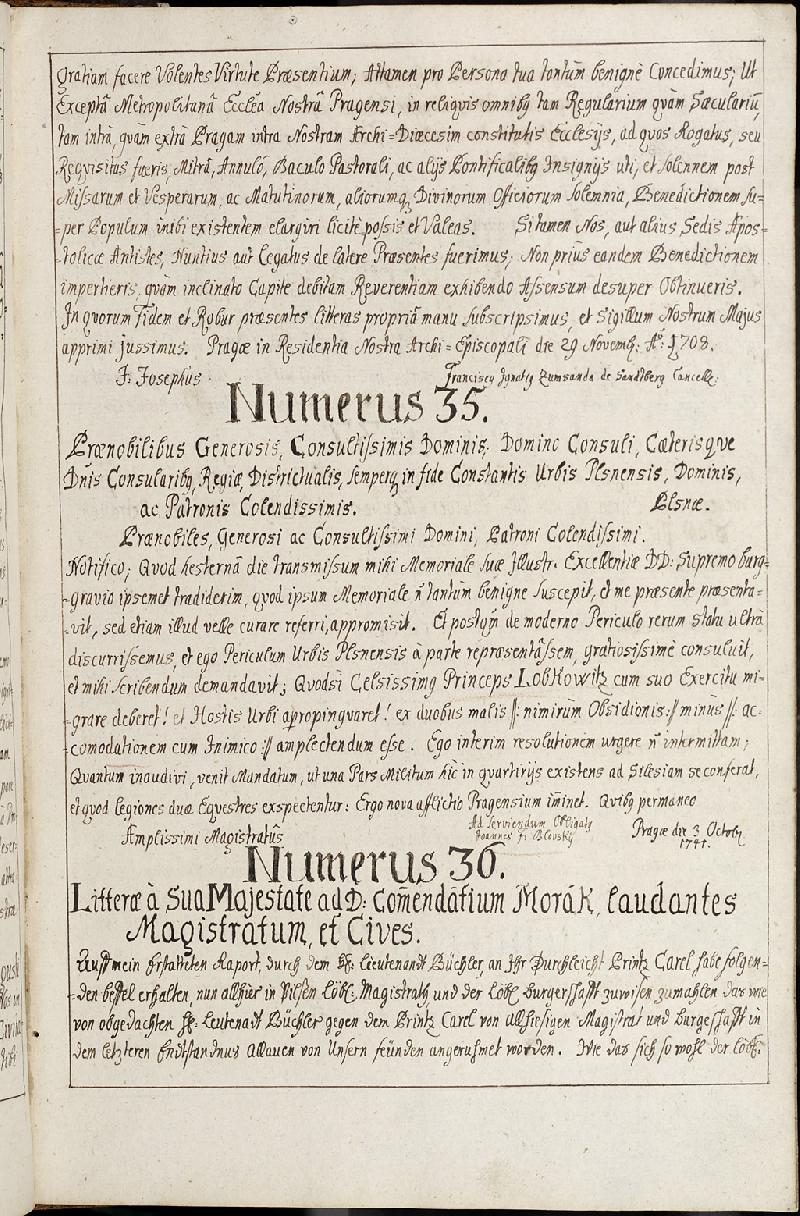 Gratiam facere Volentes Virtute Præsentium; Attamen pro Persona tua tantùm benignè Concedimus; Ut
Exceptâ Metropolitanâ Ecclêa Nostrâ Pragensi, in reliquis omnibq tam Regularium quàm Sæculariũ,
tam intrà, quàm extrà Pragam intra Nostram Archi=Diæcesim constitutis Ecclesijs, ad quos Rogatus, seu
Reqvisitus fueris, Mitrâ, Annulô, Baculo Pastorali, ac alijs Pontificalibq Insignijs uti, et solennem post
Missarum et Vesperarum, ac Matutinorum, aliorumq Divinorum Officiorum Solemnia, Benedictionem su=
=per Populum inibi existentem elargiri licitè possis et Valeas. Si tamen Nos, aut alius Sedis Apos=
=tolicæ Antistes, Nuntius aut Legatus de latere Præsentes fuerimus; Non priùs eandem Benedictionem
impertieris, quàm inclinato Capite debitam Reverentiam exhibendo Assensum desuper Obtinueris.
In quorum Fidem et Robur præsentes litteras propriâ manu subscripsimus, et Sigillum Nostrum Majus
apprimi jussimus. Pragæ in Residentia Nostra Archi=Episcopali die 29 Novemb: Aõ: 1708.
F: Josephus. Franciscq Ignatiq de Sendtberg Cancell:
Numerus 35.
Prænobilibus Generosis, Consultissimis Dominis: Domino Consuli, Cæterisqve
Dnis Consularibq, Regiæ Districtualis, semperq in fide Constantis Urbis Plsnensis, Dominis,
ac Patronis Colendissimis. Plsnæ.
Prænobiles, Generosi ac Consultissimi Domini, Patroni Colendissimi.
Notifico; Quod hesternâ die transmissum mihi Memoriale suæ Illustr. Excellentiæ DD: Supremo burg=
=gravio ipsemet tradiderim, quod ipsum Memoriale ñ tantùm benigne suscepit, et me præsente præsenta=
=vit, sed etiam illud velle curare referri, appromisit. Et postqm de moderno Periculo rerum statu ultrà
discurrissemus, et ego Periculum Urbis Plsnensis à parte repræsentâssem, gratiosissimè consuluit,
et mihi scribendum demandavit; Quodsi Celsissimq Princeps Lobkowitz cum suo Exercitu mi=
=grare deberet! et Hostis Urbi apropinquaret! ex duobus malis //: nimirum Obsidionis :// minùs //: ac=
comodationem cum Inimico :// amplectendum esse. Ego interim resolutionem urgere ñ intermittam;
Quantum inaudivi, venit Mandatum, ut una Pars Militum hîc in quartirijs existens ad Silesiam se conferat,
et quod legiones duæ Equestres exspectentur: Ergo nova afflictio Pragensium iminet. Quibq permaneo
Amplissimi Magistratûs Ad serviendum Obligatq Pragæ die 3 Octobr
Joannes 1741.
Numerus 36.
Litteræ à Sua Majestate ad D: Comẽndâtium Morâk, laudantes
Magistratum, et Cives.
Auff mein Erstatteten Raport, durch dem H: Lieutenandt Büchler, an Ihr Durchleicht Printz Carel habe folgen=
=den befel erhalten, nun allhier in Pilsen Löbl: Magistrath, und der Löbl burgerschafft zuwisen zumahlen das wie
von obgedachten H: Leutenadt Büchler gegen dem Printz Carel von allhiesigen Magistrat und burgerschafft in
dem letzteren von Unsern feünden angeruhmet worden. Wie das sich so wohl der löbl: